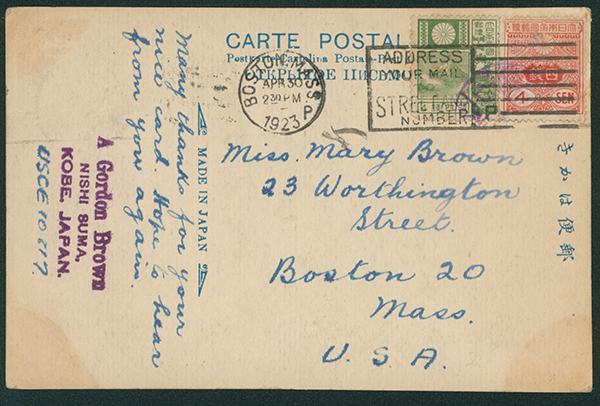 CARTE POSTALE
BOSTON, MASS.
APR 30
2 30 PM
1923
P
ADDRESS
YOUR MAIL
STREET AND
NUMBER
大日本帝國郵便
4 SEN
きかは便郵
Miss. Mary Brown
23 Worthington
Street.
Boston 20
Mass.
U. S. A.
MADE IN JAPAN
Many thanks for your
nice card. Hope to hear
from you again.
A Gordon Brown
NISHI SUMA,
KOBE, JAPAN.
USCE 10217